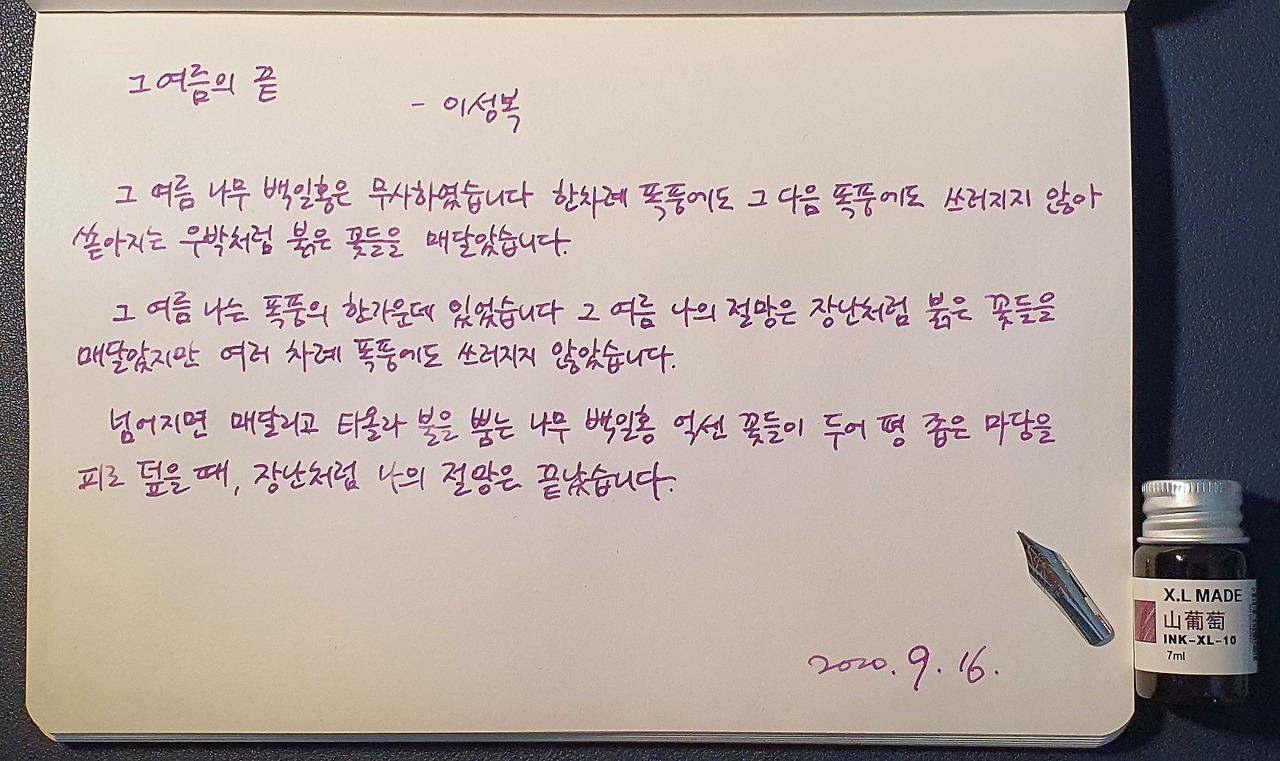 그 여름의 끝
- 이성복
그 여름 나무 백일홍은 무사하였습니다 한차례 폭풍에도 그 다음 폭풍에도 쓰러지지 않아
쏟아지는 우박처럼 붉은 꽃들을 매달았습니다.
그 여름 나는 폭풍의 한가운데 있었습니다 그 여름 나의 절망은 장난처럼 붉은 꽃들을
매달았지만 여러 차례 폭풍에도 쓰러지지 않았습니다.
넘어지면 매달리고 타올라 불을 뿜는 나무 백일홍 억센 꽃들이 두어 평 좁은 마당을
피로 덮을 때, 장난처럼 나의 절망은 끝났습니다.
X.L MADE
山葡萄
INK-XL-10
7ml
2020. 9. 16.